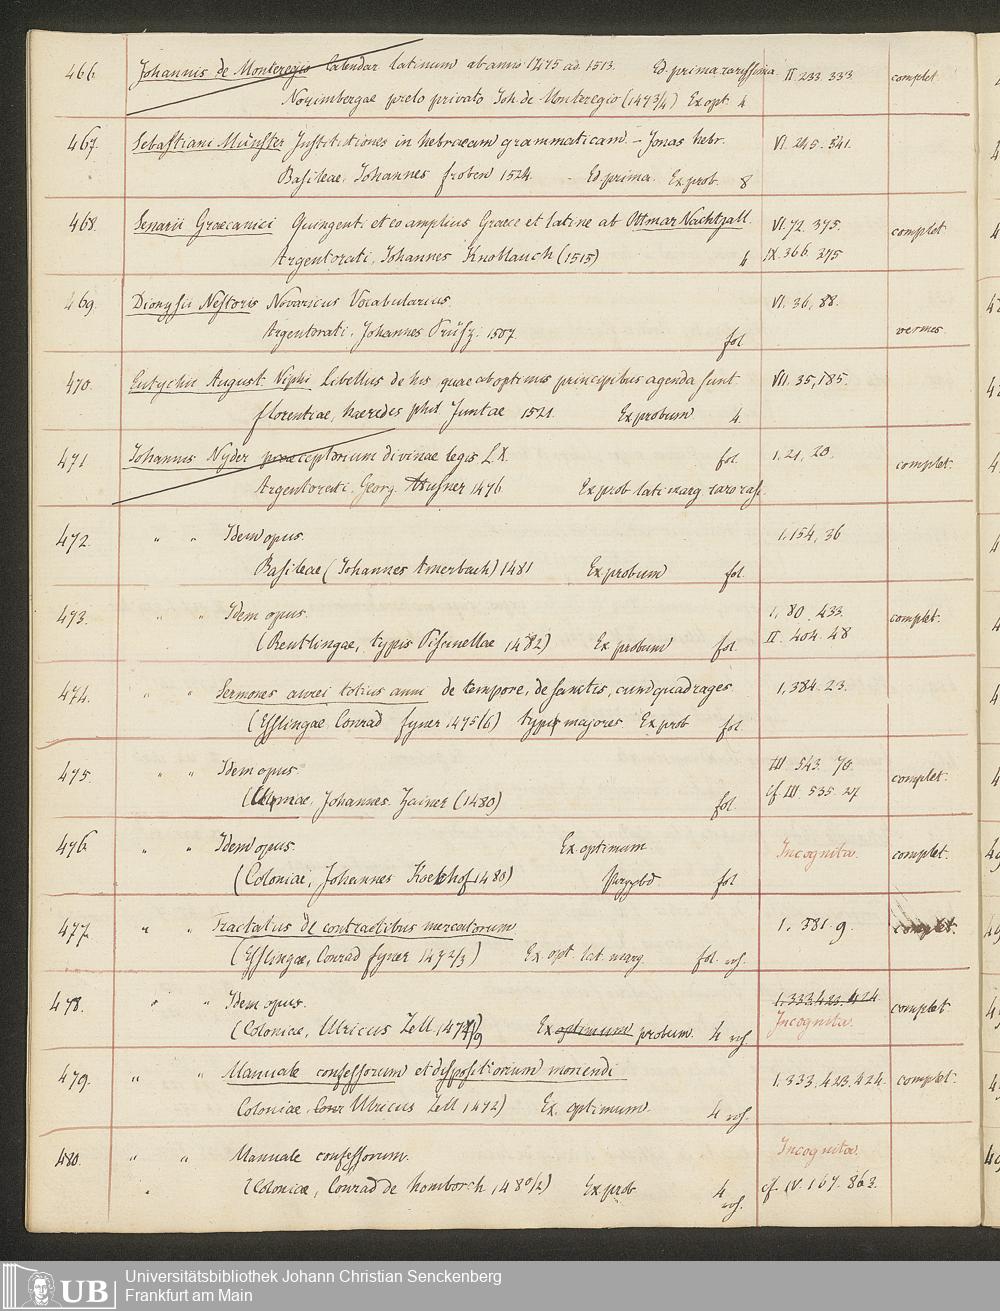 466. Johannis de Monteregio Calendar latinum ab anno 1475 ad. 1513. Ed. prima rarissima II. 233. 333 complet.
Nourimbergae prelo privato Joh. de Monteregio (1473/4) Ex opt. 4
467. Sebastiani Münster Institutiones in hebraeam grammaticam. – Jonas hebr. VI. 245. 541.
Basileae. Johannes froben 1524. Ed. prima. Ex prob. 8
468. Senarii Graecanici Quingent. et eo amplius Graece et latine ab Ottmar Nachtgall. VI. 72. 375. complet.
Argentorati, Johannes Knoblauch (1515) 4 IX. 366. 275
469. Dionysii Nestoris Novaricus Vocabularius. VI. 36, 88.
Argentorati. Johannes Prüss. 1507. fol. vermes.
470. Eutychii August. Niphi Libellus de his quae ab optimis principibus agenda sunt. VII. 35, 185.
florentiae, haeredes phil Juntae 1521. Ex probum 4.
471 Johannis Nyder praeceptorium divinae legis L. X. fol. 1. 21, 20. complet.
Argentorati. Georg. Husner 1476. Ex prob. lati marg.
472. " " Idem opus. 1. 154, 36
Basileae (Johannes Amerbach) 1481 Ex probum fol.
473. " " Idem opus. 1, 80. 433. complet.
(Reutlingae, typis Piscinellae 1482) Ex probum fol. II. 404. 48
474. " " Sermones aurei totius anni de tempore, de sanctis, cum quadrages 1, 384. 23.
(Esslingae, Conrad fyner 1475/6) typis majores Ex prob fol.
475. " " Idem opus. III. 543. 70. complet.
(Ulmae, Johannes Zainer (1480) fol. cf III. 535. 27
476 " " Idem opus. Ex. optimum Incognita. complet.
(Coloniae, Johannes Koelhof 1480) fol
477. " " Tractatus de contractibus mercatorum 1. 381. 9. complet.
(Esslingae, Conrad fyner 1472/3) Ex. opt. lat. marg. fol.
478. " " Idem opus. 1. 333. 423. 424 complet.
(Coloniae, Ulricus Zell, Ex optimum probum. 4 Incognita.
479. " " Manuale confessorum et dispositorium moriendi 1. 333. 423. 424. complet.
Coloniae, Conr Ulricus Zell 1472) Ex. optimum. 4
480. " " Manuale confessorum. Incognita.
" (Coloniae, Conrad de homborch, 1480/2) Ex prob 4 cf. IV. 167. 863.
UB
Universitätsbibliothek Johann Christian Senckenberg
Frankfurt am Main